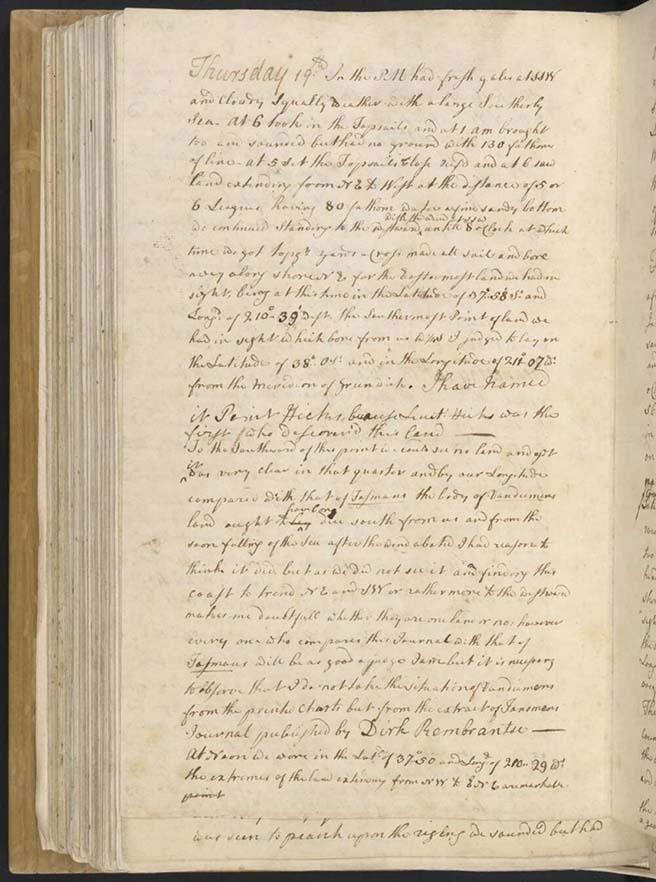 Thursday 19th In the PM had fresh gales at SSW
and Cloudy Squally Weather with a large Southerly
Sea. At 6 took in the Topsails and at 1 am brought
too and sounded but had no ground with 130 fathoms
of line. at 5 set the Topsails close reef'd and at 6 saw
land extending from NE to West at the distance of 5 or
6 Leagues having 80 fathom water a fine sandy bottom
with the wind at SSW
we continued Standing to the westward untill 8 oClock at which
time we got topgt yards a Cross made all sail and bore
away along shore NE for the Eastermost land we had in
sight, being at this time in the Latitude of 37°..58' S. and
Longd. of 210°..39' West. the Southermost Point of land we
had in sight which bore from us W¼S I judged to lay in
the Latitude of 38°..0 S. and in the Longitude of 211°..07' W.
from the Meridion of Greenwich. I have Named
it Point Hicks, because Lieut. Hicks was the
first who discover'd this land
To the Southward of this point we could see no land and yet
it
was very clear in that quarter and by our Longitude
compared with that of Tasmans the body of Vandiemens
from bore
land ought to due south from us and from the
soon falling of the Sea after the wind abated I had reason to
think it did. but as we did not see it and finding this
coast to trend NE and SW or rather more to the westward
makes me doubtfull whether they are one land or no: however
every one who compares this Journal with that of
Tasmans will be as good a judge as I am but it is necessary
to observe that I do not take the situation of Vandiemens
from the printed Charts but from the extract of Tasmans
Journal published by Dirk Rembrantse
At Noon we were in the Latd. of 37°..50' and Longd. of 210°..29' W.
the extremes of the land extending from NW to ENE a remarkable
point
was seen to preach upon the rising we sounded but had